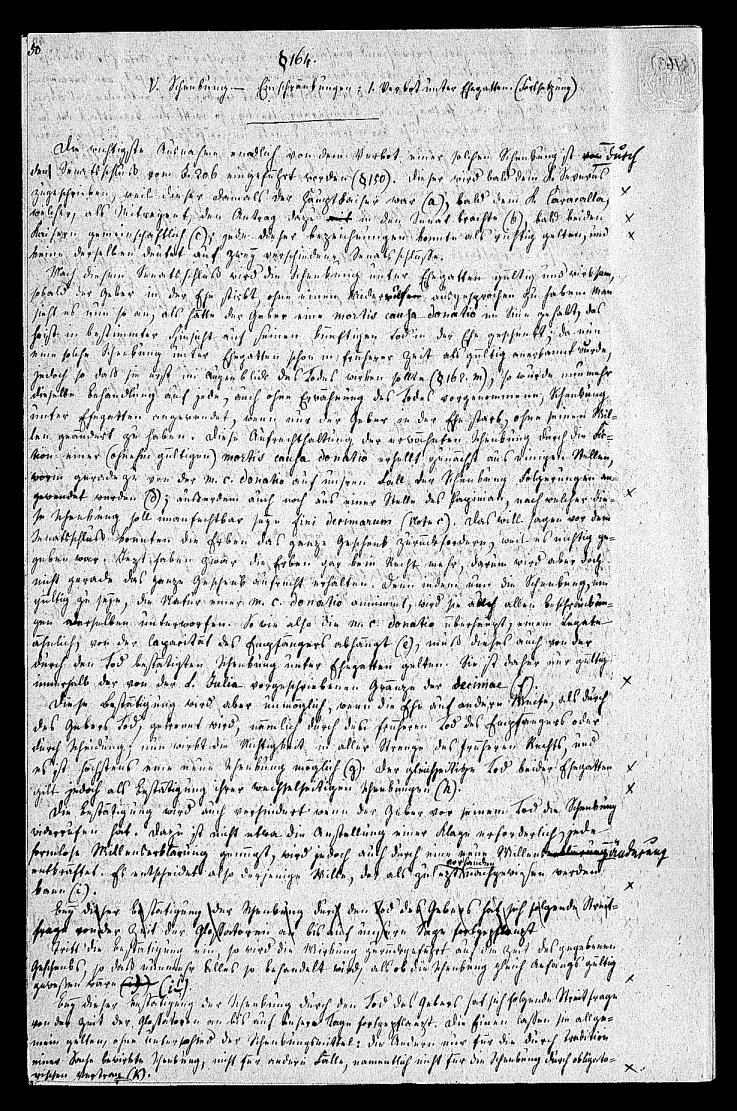 50
§ 164.
V. Schenkung. — Einschränkungen: 1. Verbot unter Ehegatten. (Fortsetzung)
Die wichtigste Ausnahme endlich von dem Verbot einer solchen Schenkung ist von durch
den Senatsschluß vom J. 206 eingeführt worden (§ 150). Dieser wird bald dem K. Severus
zugeschrieben, weil dieser damals der Hauptkaiser war (a), bald dem K. Caracalla,
welcher, als Mitregent, den Antrag dazu in den Senat brachte (b), bald beiden
Kaisern gemeinschaftlich (c); jede dieser Bezeichnungen konnte als richtig gelten, und
keine derselben deutet auf zwey verschiedene Senatsschlüsse.
Nach diesem Senatsschluß wird die Schenkung unter Ehegatten gültig und wirksam,
sobald der Geber in der Ehe stirbt, ohne einen Widerruf ausgesprochen zu haben. Man
sieht es nun so an, als hätte der Geber eine mortis causa donatio im Sinn gehabt, das
heißt in bestimmter Hinsicht auf seinen künftigen Tod in der Ehe geschenkt; da nun
eine solche Schenkung unter Ehegatten schon in früherer Zeit als gültig anerkannt wurde,
jedoch so daß sie erst im Augenblick des Todes wirken sollte (§ 162. m), so wurde nunmehr
dieselbe Behandlung auf jede, auch ohne Erwähnung des Todes vorgenommene, Schenkung
unter Ehegatten angewendet, wenn nur der Geber in der Ehe starb, ohne seinen Wil-
len geändert zu haben. Diese Aufrechthaltung der versuchten Schenkung durch die Fic-
tion einer (ohnehin gültigen) mortis causa donatio erhellt zunächst aus einigen Stellen,
worin geradezu von der m. c. donatio auf unsren Fall der Schenkung Folgerungen an-
gewendet werden (d); außerdem auch noch aus einer Stelle des Papinian, nach welcher die-
se Schenkung soll unanfechtbar seyn fini decimarum (Note c). Das will sagen vor dem
Senatsschluß konnten die Erben das ganze Geschenk zurückfordern, weil es nichtig ge-
geben war. Jezt haben zwar die Erben gar kein Recht mehr, darum wird aber doch
nicht gerade das ganze Geschenk aufrecht erhalten. Denn indem nun die Schenkung, um
gültig zu seyn, die Natur einer m. c. donatio annimmt, wird sie auch allen Beschränkun-
gen derselben unterworfen. So wie also die m. c. donatio überhaupt, einem Legate
ähnlich, von der Capacität des Empfängers abhängt (e), muß dieses auch von der
durch den Tod bestätigten Schenkung unter Ehegatten gelten. Sie ist daher nur gültig
innerhalb der von der L. Julia vorgeschriebenen Gränze der decimae (f).
Diese Bestätigung wird aber unmöglich, wenn die Ehe auf andere Weise, als durch
des Gebers Tod, getrennt wird, nämlich durch den früheren Tod des Empfängers oder
durch Scheidung; nun wirkt die Nichtigkeit in aller Strenge des früheren Rechts, und
es ist höchstens eine neue Schenkung möglich (g). Der gleichzeitige Tod beider Ehegatten
gilt jedoch als Bestätigung ihrer wechselseitigen Schenkungen (h).
Die Bestätigung wird auch verhindert wenn der Geber vor seinem Tod die Schenkung
widerrufen hat. Dazu ist nicht etwa die Anstellung einer Klage erforderlich, jede
formlose Willenserklärung genügt, wird jedoch auch durch eine neue Willensänderung
entkräftet. Es entscheidet also derjenige Wille, der als zuletzt vorhanden nachgewiesen werden
kann (i).
Bey dieser Bestätigung der Schenkung durch den Tod des Gebers hat sich folgende Streit-
frage von der Zeit der Glossatoren an bis auf unsere Tage fortgepflanzt
Tritt die Bestätigung ein, so wird die Wirkung zurückgeführt auf die Zeit des gegebenen
Geschenks, so daß nunmehr Alles so behandelt wird, als ob die Schenkung gleich Anfangs gültig
gewesen wäre (i¹).
Bey dieser Bestätigung der Schenkung durch den Tod des Gebers hat sich folgende Streitfrage
von der Zeit der Glossatoren an bis auf unsere Tage fortgepflanzt. Die Einen lassen sie allge-
mein gelten, ohne Unterschied der Schenkungsmittel; die Andern nur für die durch Tradition
einer Sache bewirkte Schenkung, nicht für andere Fälle, namentlich nicht für die Schenkung durch obligato-
rischen Vertrag (k).